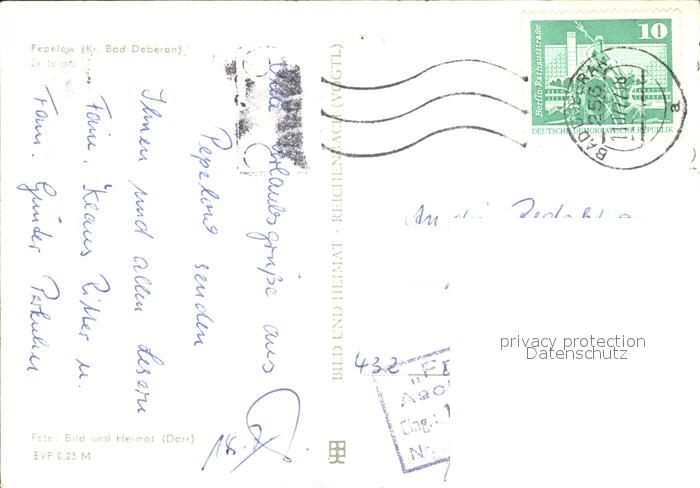 Pepelow (Kr. Bad Doberan)
Zeltplatz
Viele Urlaubsgrüße aus
Pepelow senden
Ihnen und allen Lesern
Fam. Klaus Ritter u.
Fam. Günter
Foto: Bild und Heimat (Darr)
EVP 0,25 M
BILD UND HEIMAT · REICHENBACH (VOGTL)
10
Berlin-Rathausstraße
DEUTSCHE DEMOKRATISCHE REPUBLIK
BAD DOBERAN
a
An die Redaktion
432
Eing.:
privacy protection
Datenschutz